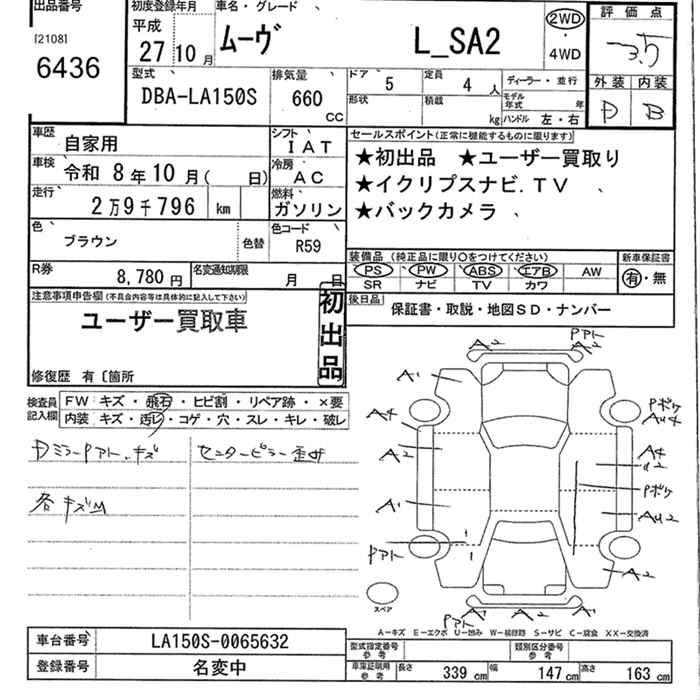 出品番号 初度登録年月 車名・グレード 評価点
[2108] 平成 2WD
6436 27 10月 ムーヴ L_SA2 ・ 3.5
4WD
型式 排気量 ドア 5 定員 4人 ディーラー・並行 外装 内装
DBA-LA150S 660 CC 形状 積載 kg モデル年式 年 D B
ハンドル 左・右
車歴 自家用 シフト IAT セールスポイント(正常に機能するものに限ります)
車検 令和 8年10月( 日) 冷房 AC ★初出品 ★ユーザー買取り
走行 2万9千796 km 燃料 ガソリン ★イクリプスナビ.TV
★バックカメラ
色 ブラウン 色替 色コード R59
装備品(純正品に限り〇をつけてください) 新車保証書
R券 8,780円 名変通知期限 月 日 PS PW ABS エアB AW 有・無
SR ナビ TV カワ
注意事項申告欄(不具合内容等は具体的に記入して下さい) 初出品 後日品
ユーザー買取車 保証書・取説・地図SD・ナンバー
修復歴 有〔箇所
検査員 FW キズ・飛石・ヒビ割・リペア跡・×要
記入欄 内装 キズ・汚レ・コゲ・穴・スレ・キレ・破レ
DミラーPアト.キズ センターピラー歪み
各キズM
Pアト
A2 A2
A1
A4 Pポケ
AU4
A2 A4
U2
Pポケ
A1 AU2
Pアト
A2
スペア Pアト A1 A2 A1
A-キズ E-エクボ U-凹み W-補修跡 S-サビ C-腐食 XX-交換済
車台番号 LA150S-0065632 型式指定番号 参考 類別区分番号 参考
登録番号 名変中 車庫証明用 参考 長さ 339cm 幅 147cm 高さ 163cm